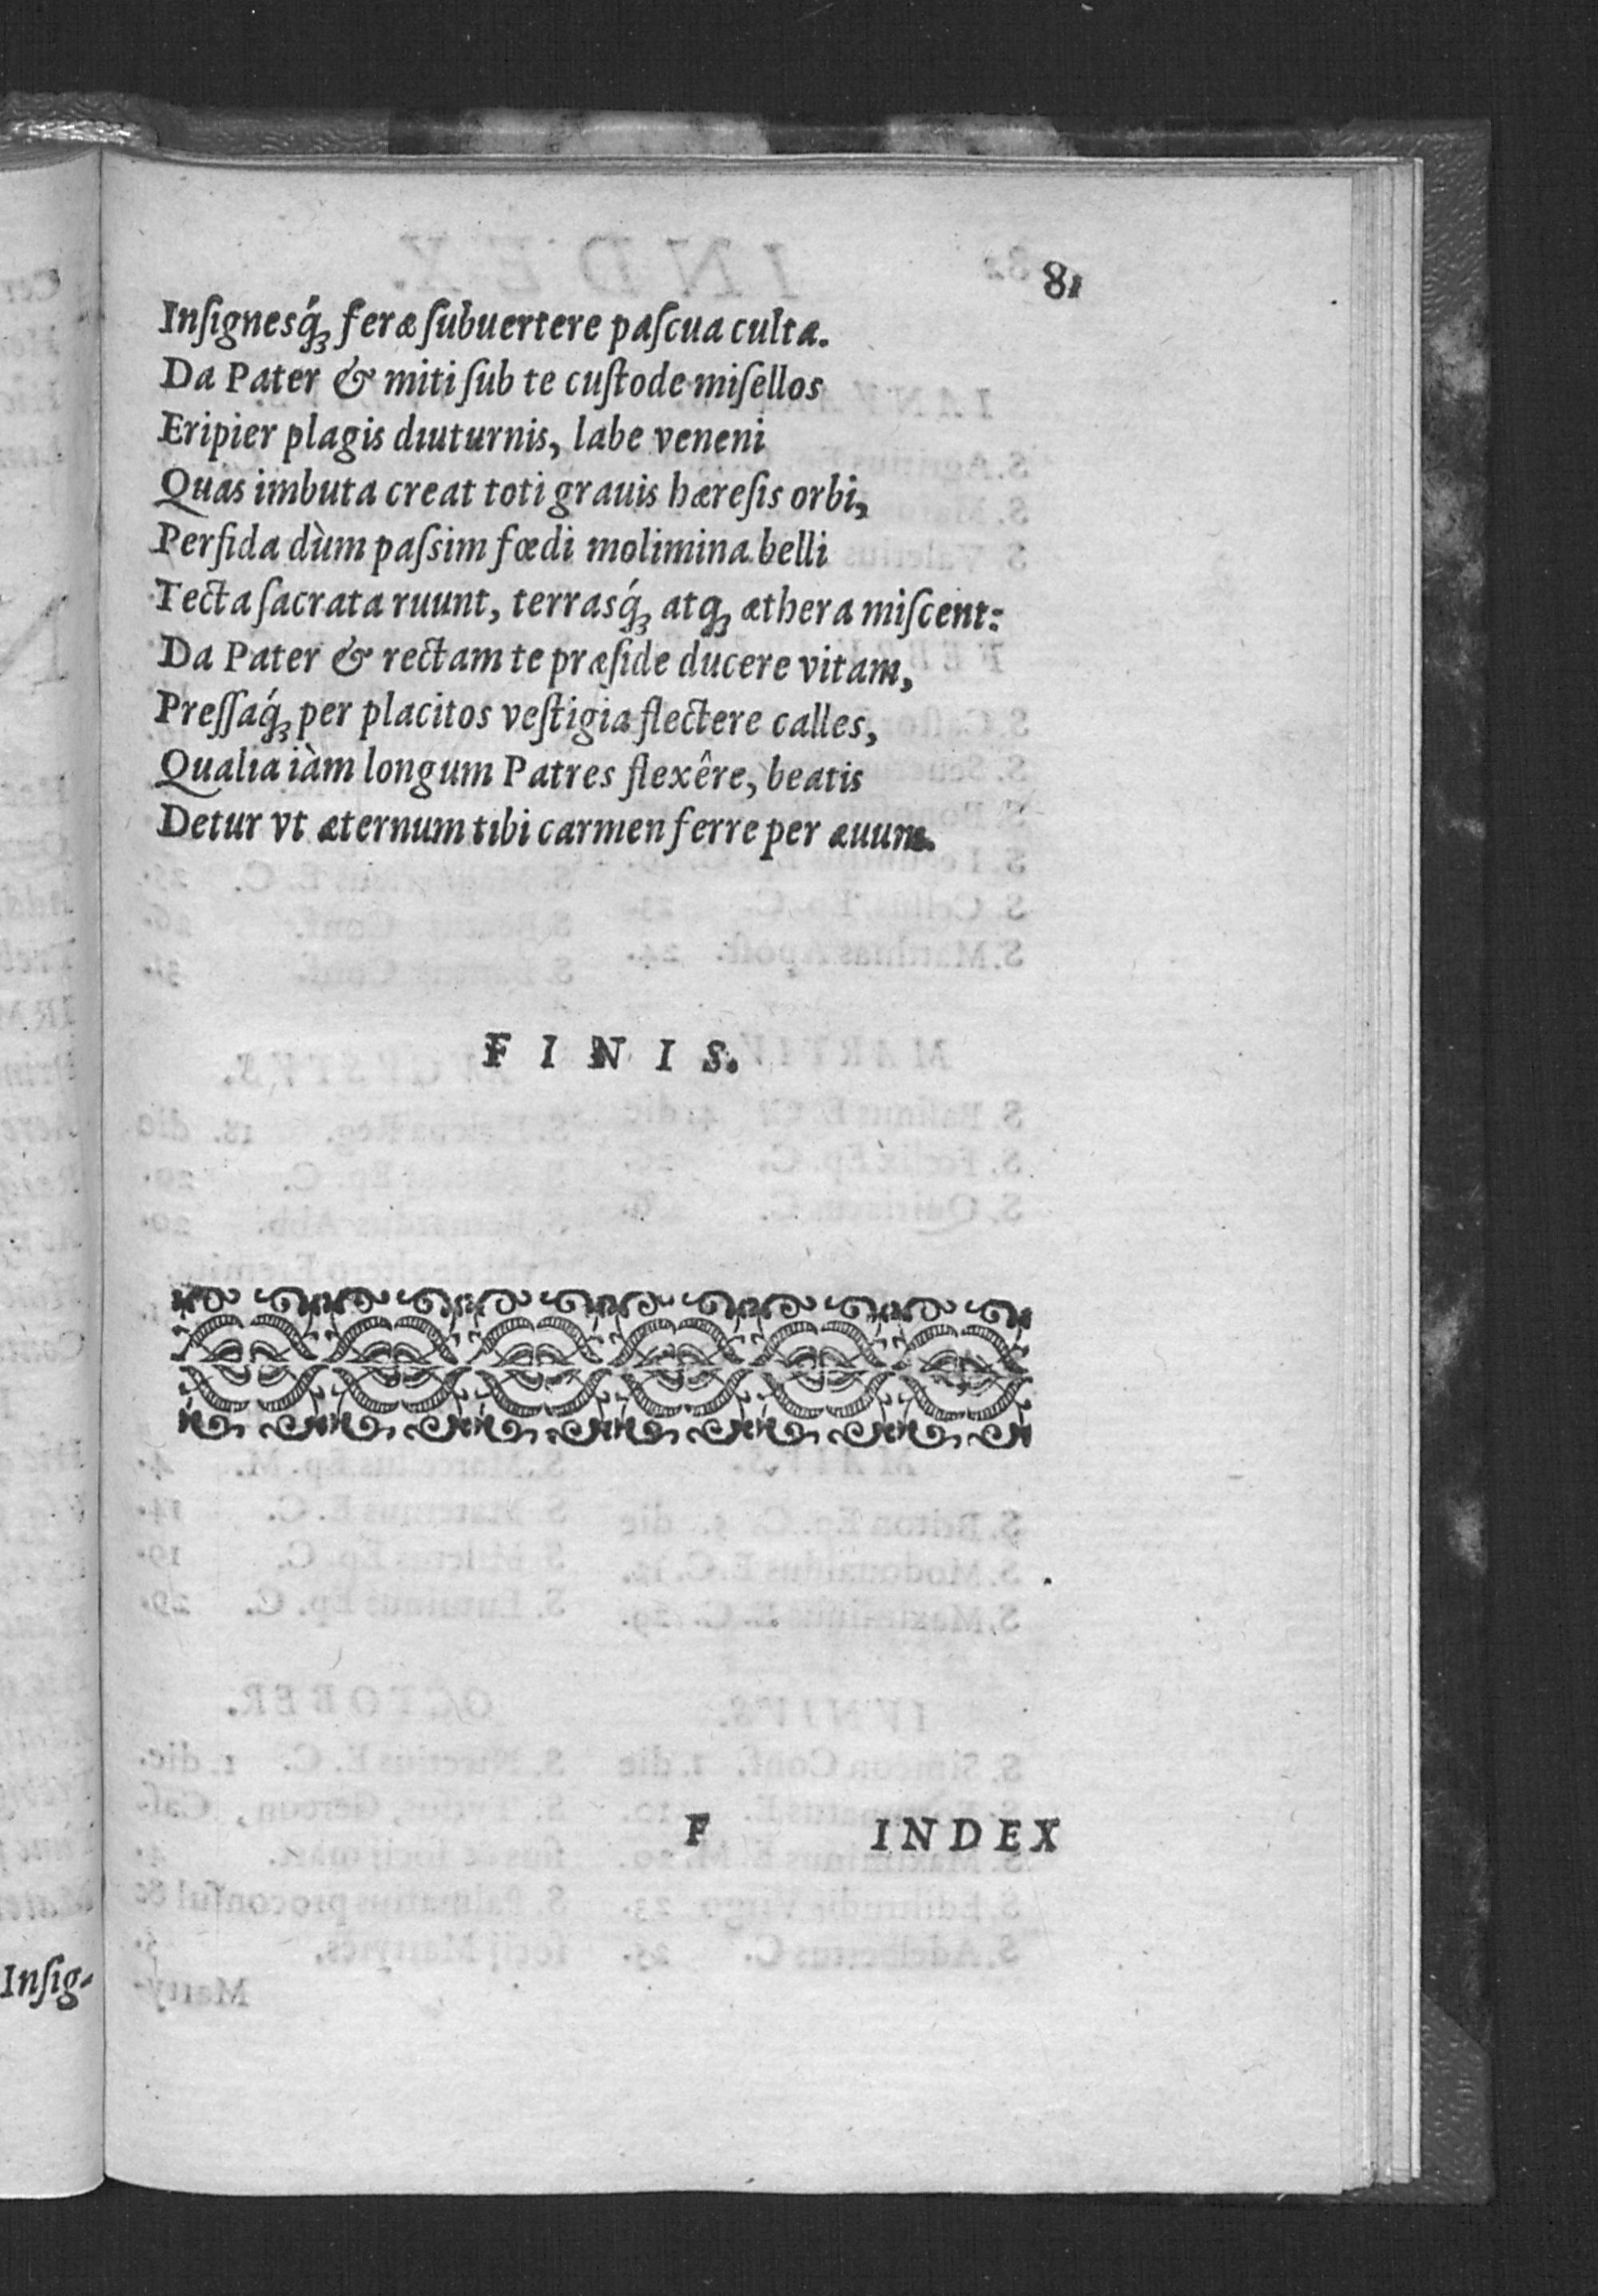 81
Inſignesq́ꝫ feræ ſubuertere paſcua culta.
Da Pater & miti ſub te cuſtode miſellos
Eripier plagis diuturnis, labe veneni
Quas imbuta creat toti grauis hæreſis orbi,
Perfida dùm paſsim fœdi molimina belli
Tecta ſacrata ruunt, terrasq́ꝫ atqꝫ æthera miſcent:
Da Pater & rectam te præſide ducere vitam,
Preſſaq́ꝫ per placitos veſtigia flectere calles,
Qualia iàm longum Patres flexêre, beatis
Detur vt æternum tibi carmen ferre per æuum.
FINIS.
F INDEX
Inſig-